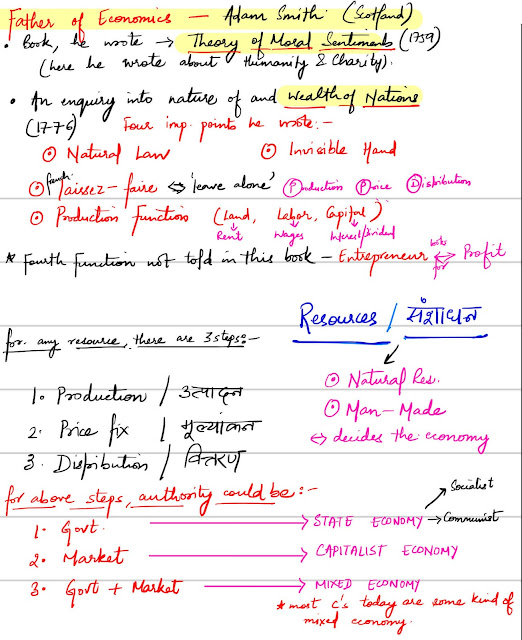 Father of Economics — Adam Smith (Scotland)
• Book, he wrote → Theory of Moral Sentiments (1759)
(here he wrote about Humanity & Charity).
• An enquiry into nature of and Wealth of Nations
(1776) Four imp. points he wrote:-
⊙ Natural Law ⊙ Invisible Hand
⊙ french Laissez-faire ⇔ 'leave alone' Production Price Distribution
⊙ Production Function (Land, Labor, Capital)
Rent Wages Interest/Dividend
* Fourth Function not told in this book - Entrepreneur looks for Profit
Resources / संसाधन
for any resource, there are 3 steps:-
⊙ Natural Res.
1. Production / उत्पादन
⊙ Man-Made
2. Price fix / मूल्यांकन
⇔ decides the economy
3. Distribution / वितरण
for above steps, authority could be:-
Socialist
1. Govt → STATE ECONOMY → Communist
2. Market → CAPITALIST ECONOMY
3. Govt + Market → MIXED ECONOMY
* most C's today are some kind of
mixed economy.